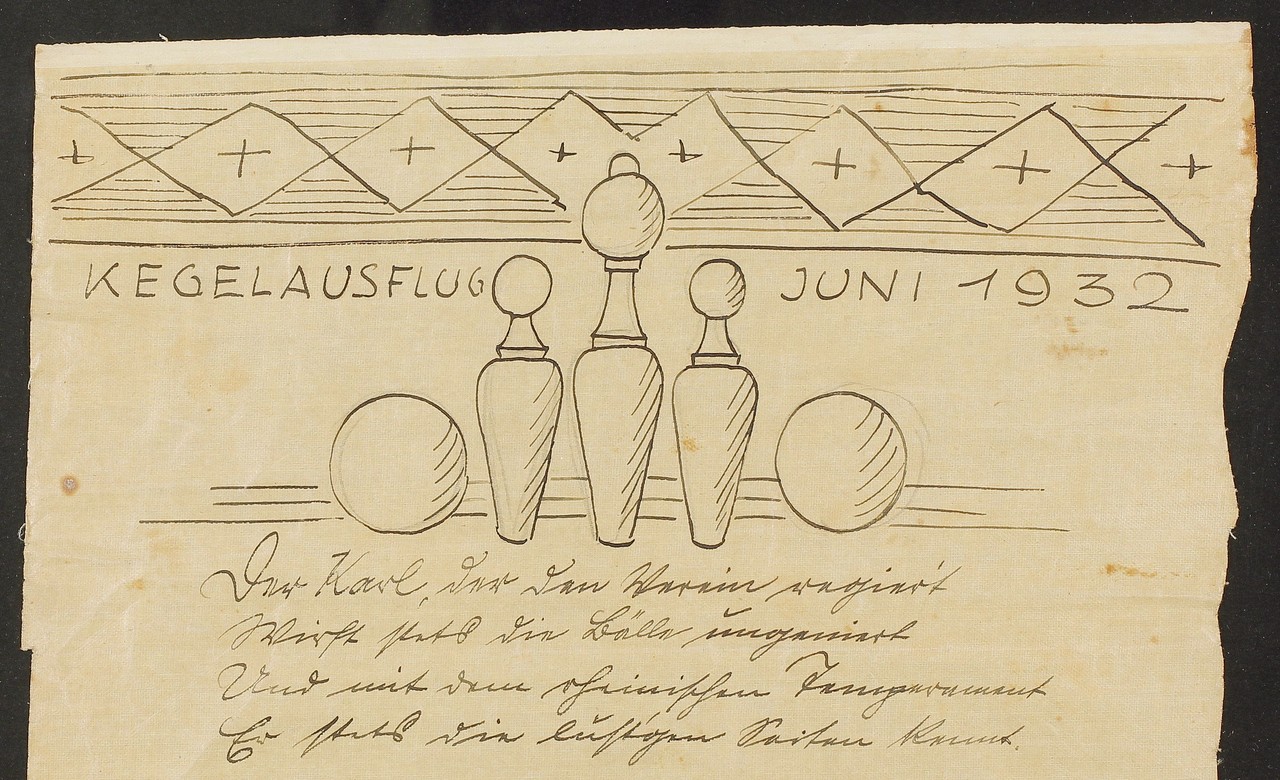 KEGELAUSFLUG JUNI 1932
Der Karl, der den Verein regiert
Wirft stets die Bälle ungeniert
Und mit dem rheinischen Temperament
Er stets die lust'gen Seiten kennt.